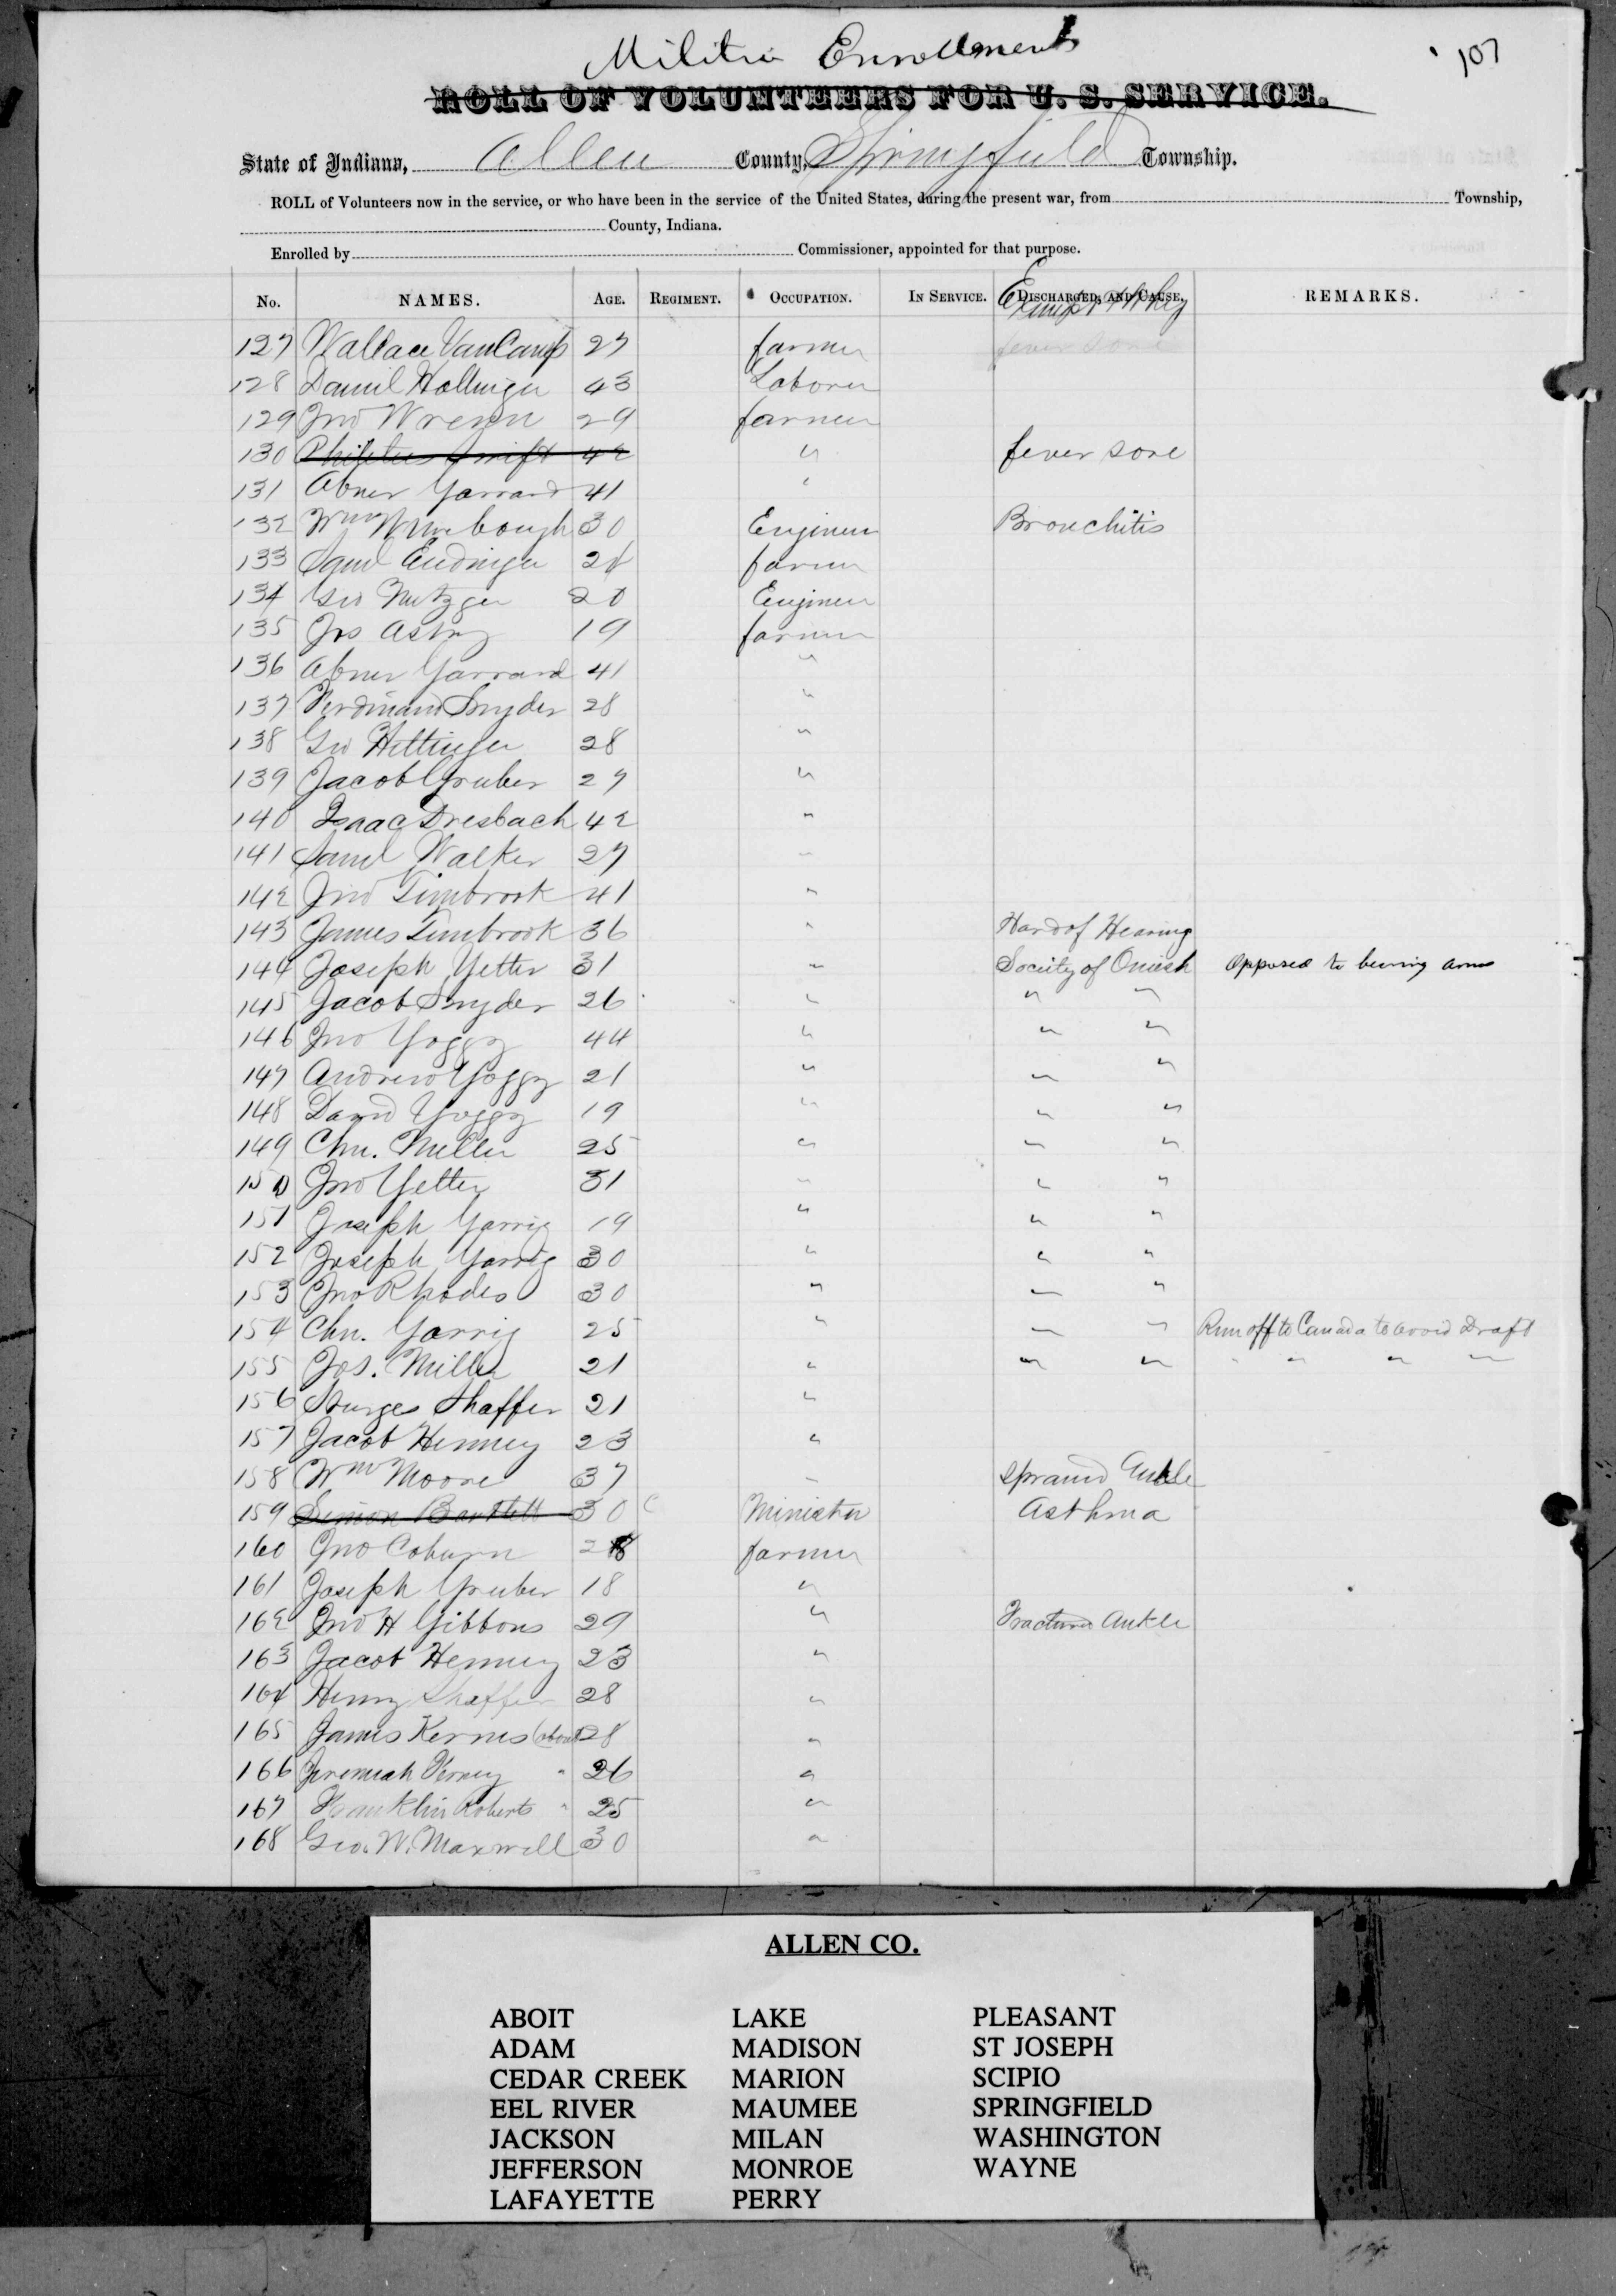 Militia Enrollments
107
ROLL OF VOLUNTEERS FOR U. S. SERVICE.
State of Indiana, Allen County, Springfield Township.
ROLL of Volunteers now in the service, or who have been in the service of the United States, during the present war, from Township,
County, Indiana.
Enrolled by Commissioner, appointed for that purpose.
No. NAMES. AGE. REGIMENT. OCCUPATION. IN SERVICE. DISCHARGED, AND CAUSE. REMARKS.
Exempt & Why
127 Wallace VanCamp 27 farmer fever sore
128 Daniel Hollinger 43 Laborer
129 Jno Wrenn 29 farmer
130 Philetus Swift 42 " fever sore
131 Abner Garrard 41 "
132 Wm 30 Engineer Bronchitis
133 Saml 28 farmer
134 Geo Metzger 20 Engineer
135 Jos Astry 19 farmer
136 Abner Garrard 41 "
137 Ferdinand Snyder 28 "
138 Geo Hettinger 28 "
139 Jacob Gruber 27 "
140 Isaac Dresbach 42 "
141 Saml Walker 27 "
142 Jno Timbrook 41 "
143 James Timbrook 36 " Hard of Hearing
144 Joseph Yetter 31 " Society of Omish Opposed to bearing arms
145 Jacob Snyder 26 " " "
146 Jno Yoggy 44 " " "
147 Andrew Yoggy 21 " " "
148 David Yoggy 19 " " "
149 Chn. Miller 25 " " "
150 Jno Yetter 31 " " "
151 Joseph Garrig 19 " " "
152 Joseph Garrig 30 " " "
153 Jno Rhodes 30 " " "
154 Chn. Garrig 25 " " " Run off to Canada to avoid Draft
155 Jos. Miller 21 " " " " " " "
156 Sturges Shaffer 21 "
157 Jacob Henney 23 "
158 Wm Moore 37 " Spraind Ankle
159 Simon Bartlett 30 C Minister Asthma
160 Jno Coburn 28 farmer
161 Joseph Gruber 18 "
162 Jno H Gibbons 29 " Fractured Ankle
163 Jacob Henney 23 "
164 Henry Shaffer 28 "
165 James Kernes (about 28 "
166 Jeremiah " 26 "
167 Franklin Roberts " 25 "
168 Geo. W. Maxwell 30 "
ALLEN CO.
ABOIT LAKE PLEASANT
ADAM MADISON ST JOSEPH
CEDAR CREEK MARION SCIPIO
EEL RIVER MAUMEE SPRINGFIELD
JACKSON MILAN WASHINGTON
JEFFERSON MONROE WAYNE
LAFAYETTE PERRY